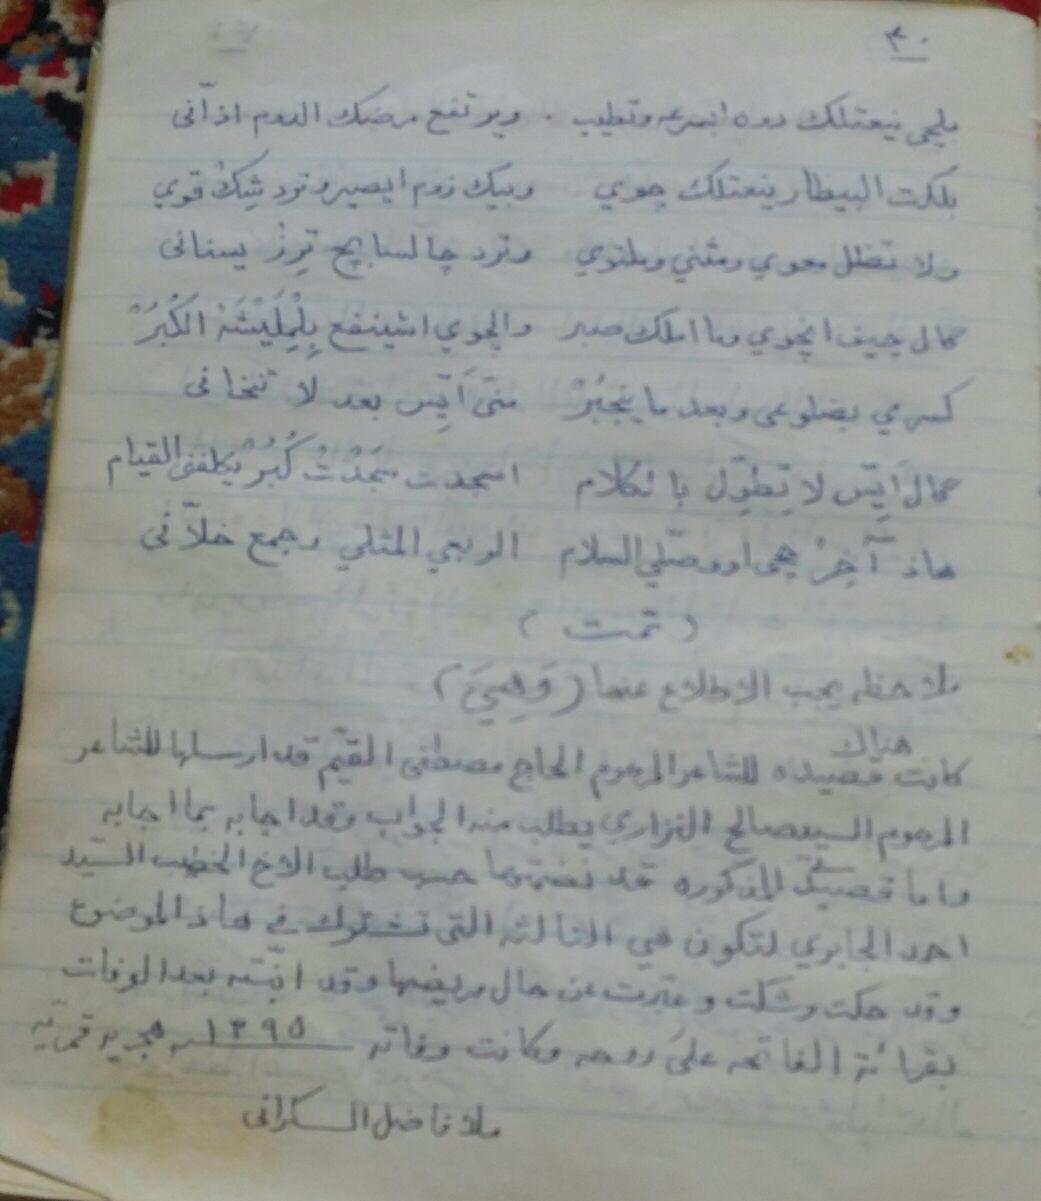 ٣٠
يلچي نبعثلك دوه ابسرعه وتطيب . ويرتفع مرضك الدوم اذاني
بلكت البيطار ينعتلك چوي وبيك زوم ايصير وترد شيكْ قوي
ولا تظل معوي ومثني وملتوي وترد چالسابج تِرِزْ يسناني
گال چيف انچوي وما املك صبر والچوي اشينفع بِلْمِلَيْشَهْ الكُبُرْ
كسرمي بضلوعي وبعد ما ينجبُرْ منّي أَيِّس بعد لا تنخاني
گال أَيِّس لا تِطوِّل بالكلام اسجدت سَجَدْتْ كُبُرْ يكلفني القيام
هاذ آخِرْ حچي او وصّلي السلام الربعي المثلي وجمع خلّاني
( تمت )
ملاحظه يجب الاطلاع عنها ( وَهِيَ )
كانت هناك قصيده للشاعر المرحوم الحاج مصطفى القيّم قد ارسلها للشاعر
المرحوم السيد صالح النزاري يطلب منه الجواب وقد اجابه بما اجابه
واما قصيدتي المذكوره قد نضمتها حسب طلب الاخ الخطيب السّيد
احمد الجابري لتكون هي الثالثه التي تشترك في هاذ الموضوع
وقد حكت وشكت وعبّرت عن حال مريضها وقد ابّنته بعد الوفات
بقرائة الفاتحه علىَ روحه وكانت وفاته ١٣٩٥ ه هجريه قمريّه
ملا فاضل السكراني